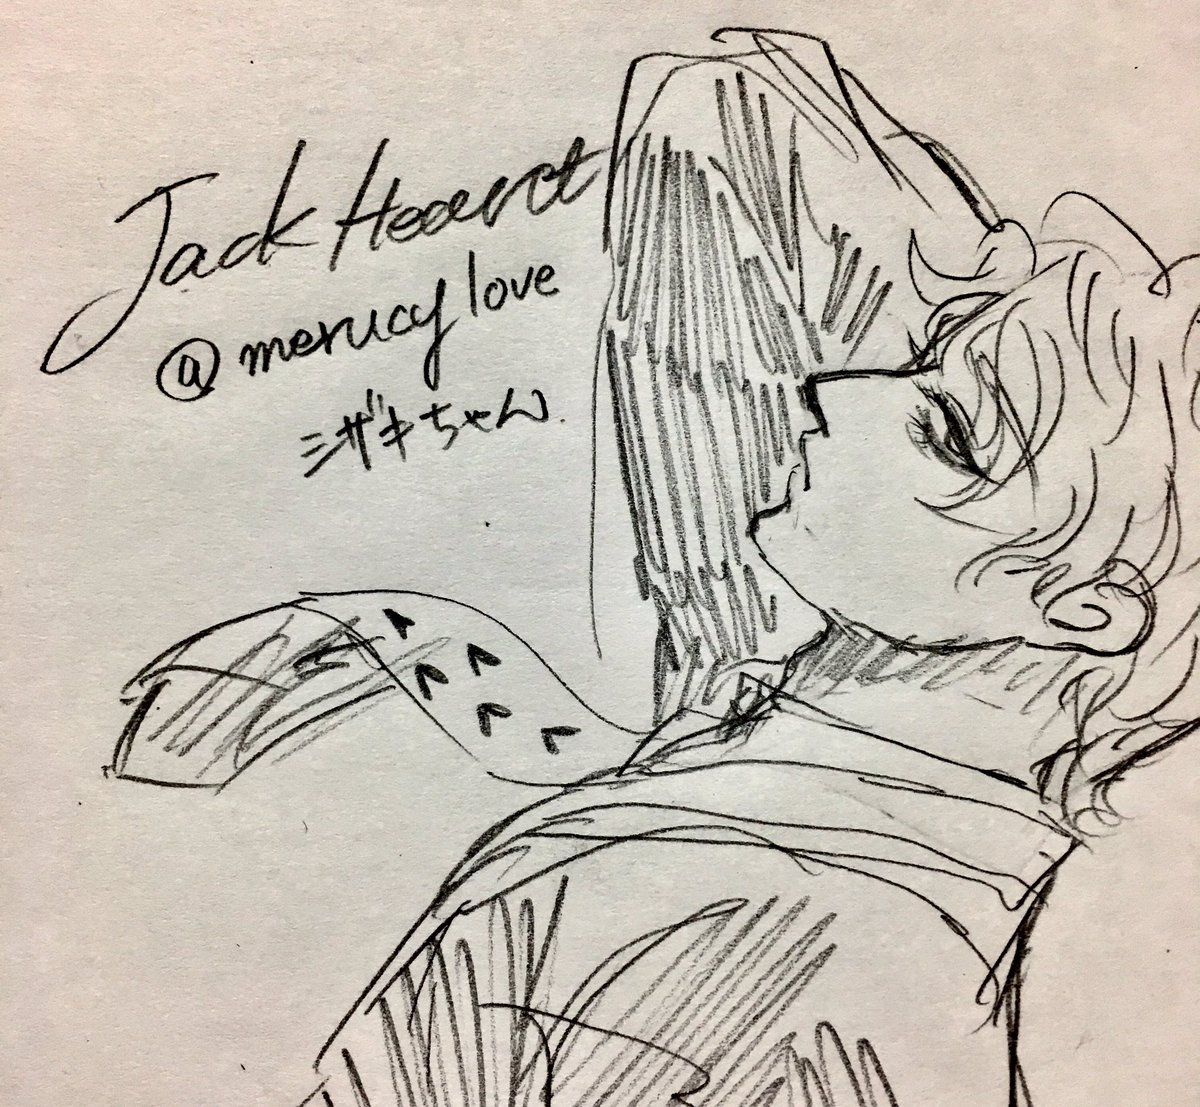 Jack Heart
@merucylove
ジザキちゃん